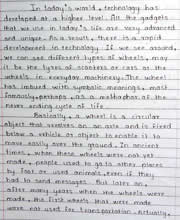 In today's world, technology has
developed at a higher level. All the gadgets
that we use in today's life are very advanced
and unique. As a result, there is a rapid
development in technology. If we see around,
we can see different types of wheels, may
it be the tyres of scooters or cars or the
wheels in everyday machinery. The wheel
has imbued with symbolic meanings, most
famously, perhaps, as a metaphor of the
never ending cycle of life.
Basically, a wheel is a circular
object that revolves on an axle and is fixed
below a vehicle or object to enable it to
move easily over the ground. In ancient
times, when these wheels were not yet
made, people used to go to other places
by foot or used animals, even if they
had to send messages. But later on,
after many years when the wheels were
made, the first wheels that were made
were not used for transportation. Actually,